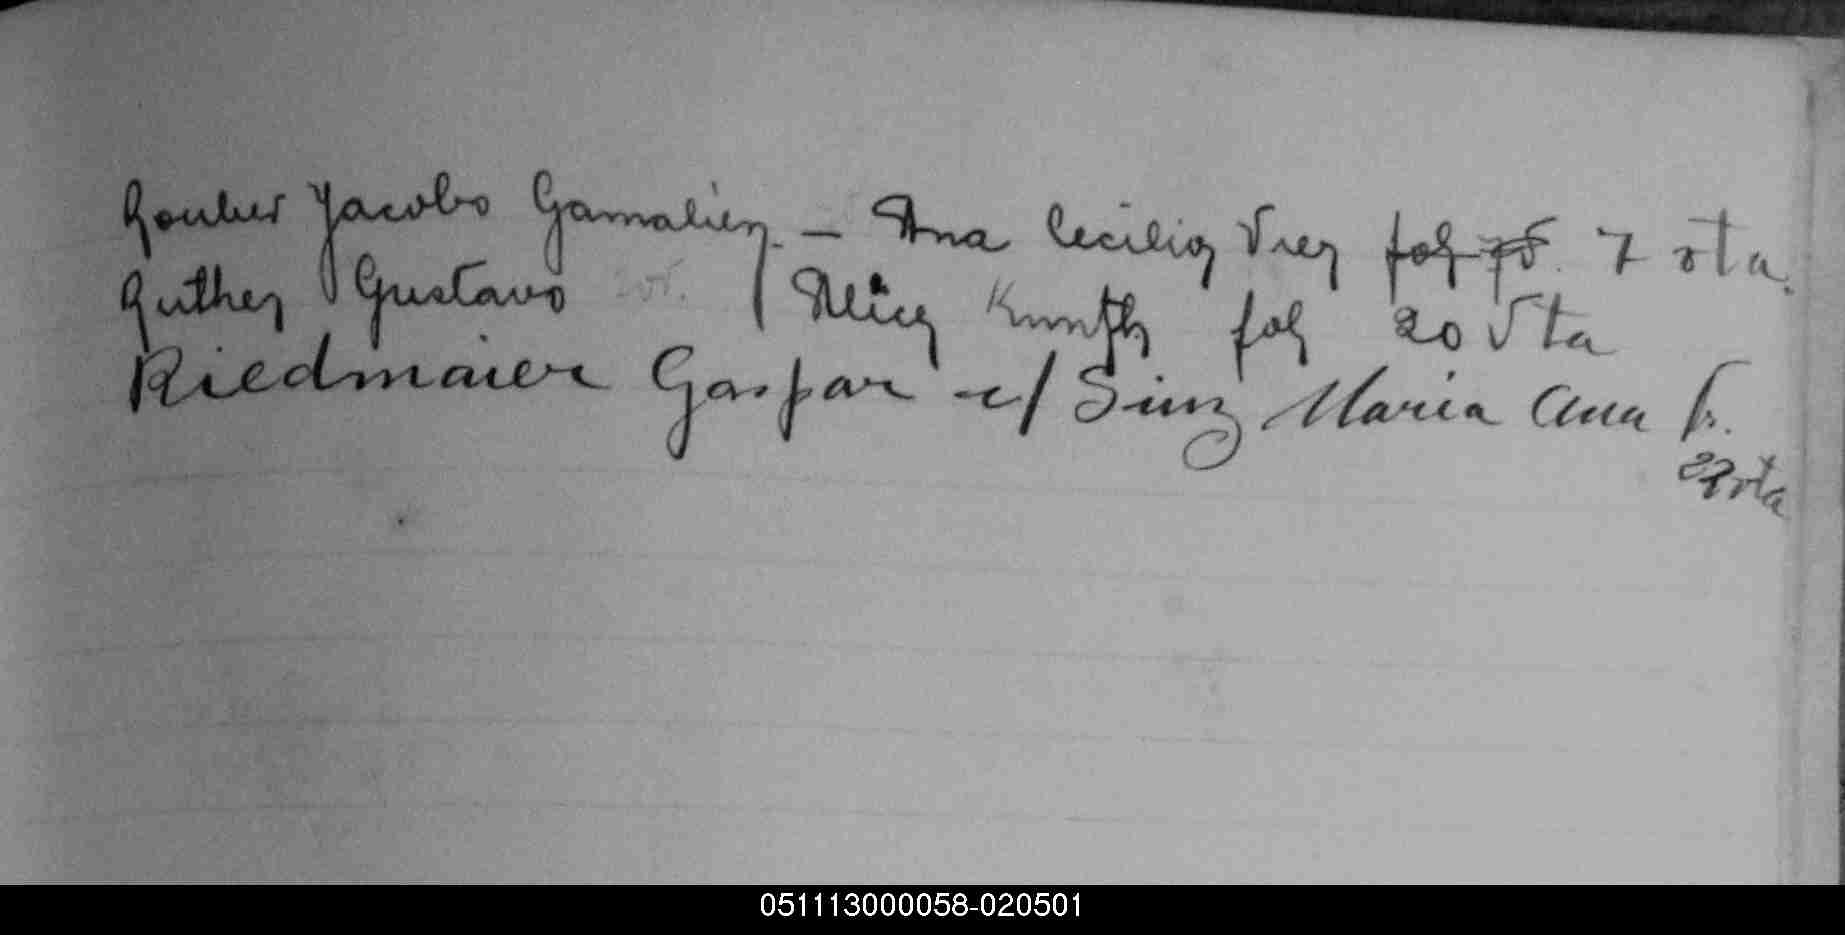 Rouber Jacobo Gamalien - Ana Cecilia Vrey fol 7 vta.
Ruther Gustavo / Alicy Kunth fol 20 Vta
Riedmaier Gaspar c/ Sinz María Ana f.
22 vta
051113000058-020501